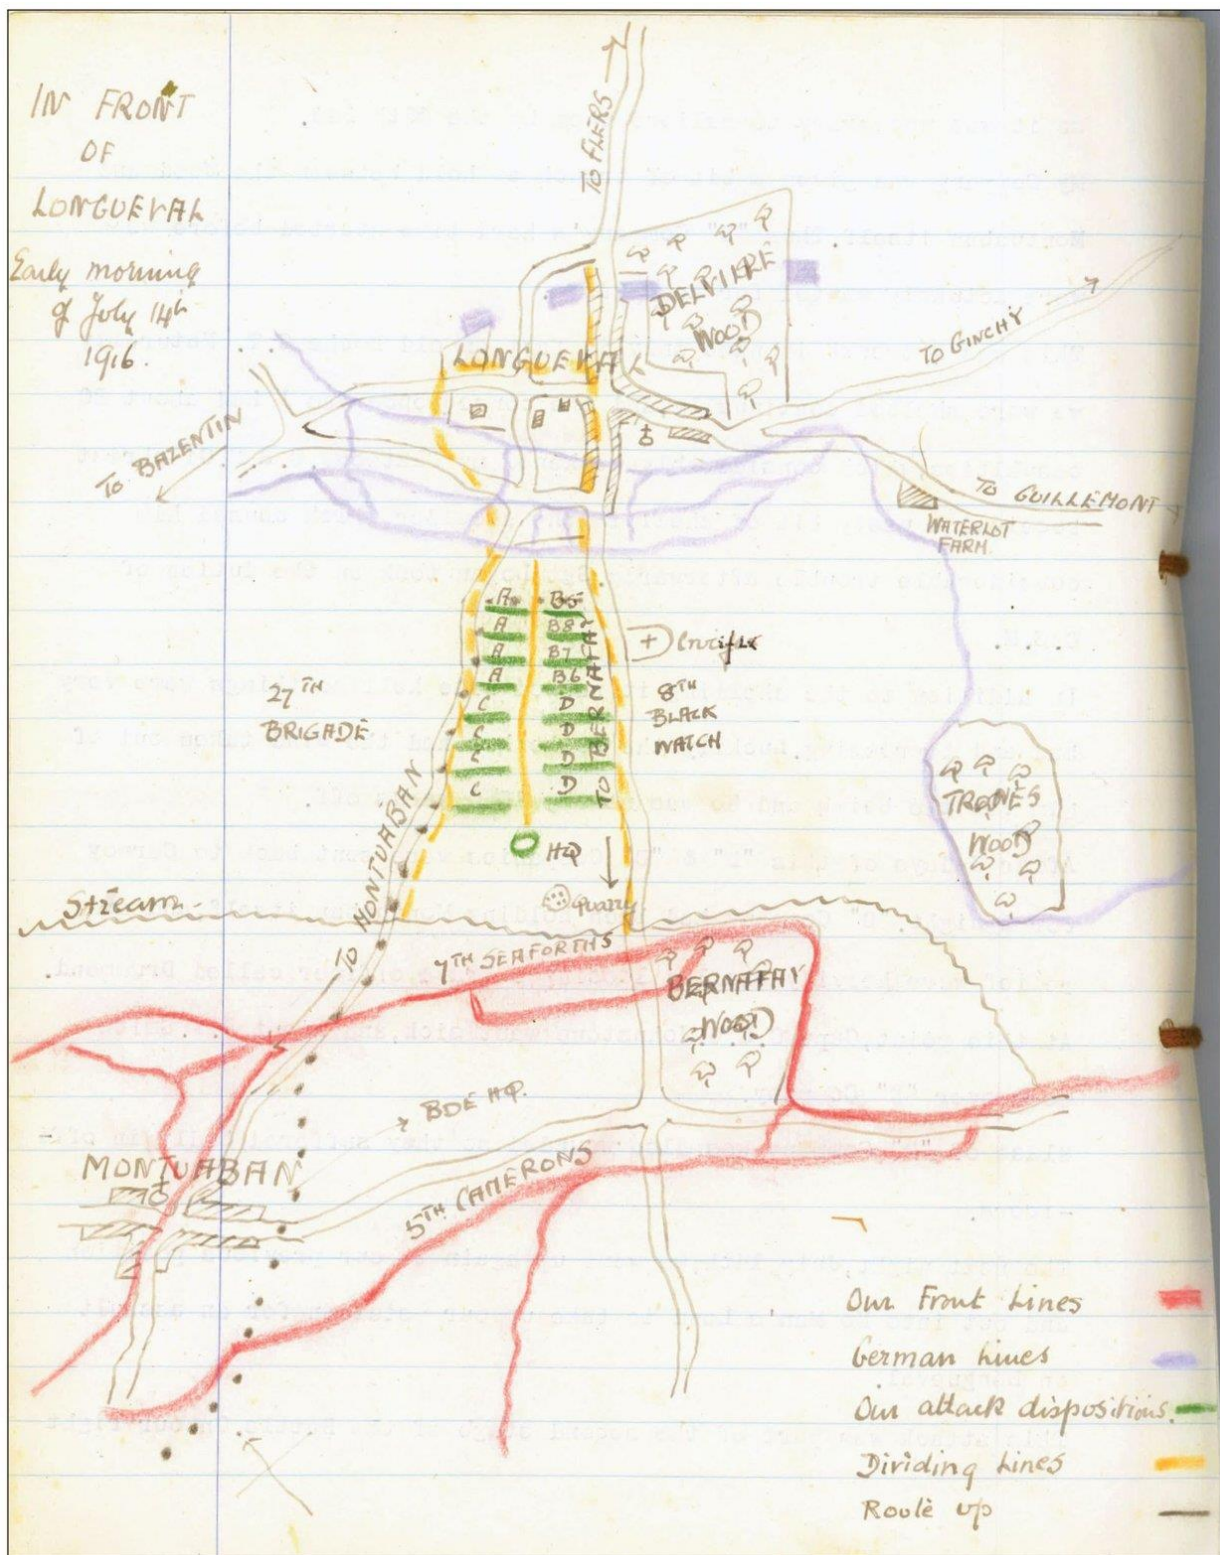 IN FRONT
OF
LONGUEVAL
Early morning
of July 14th
1916.
TO FLERS
DELVILLE
WOOD
LONGUEVAL
TO GINCHY
TO BAZENTIN
TO GUILLEMONT
WATERLOT
FARM.
A B5
A B8
A B7
A B6
C D
C D
C D
C D
TO BERNAFAY
Crucifix
27TH
BRIGADE
8TH
BLACK
WATCH
TRONES
WOOD
HQ
Quarry
Stream
TO MONTUABAN
7TH SEAFORTHS
BERNAFAY
WOOD
BDE HQ.
MONTUABAN
5TH CAMERONS
Our Front Lines
German Lines
Our attack dispositions.
Dividing Lines
Route up